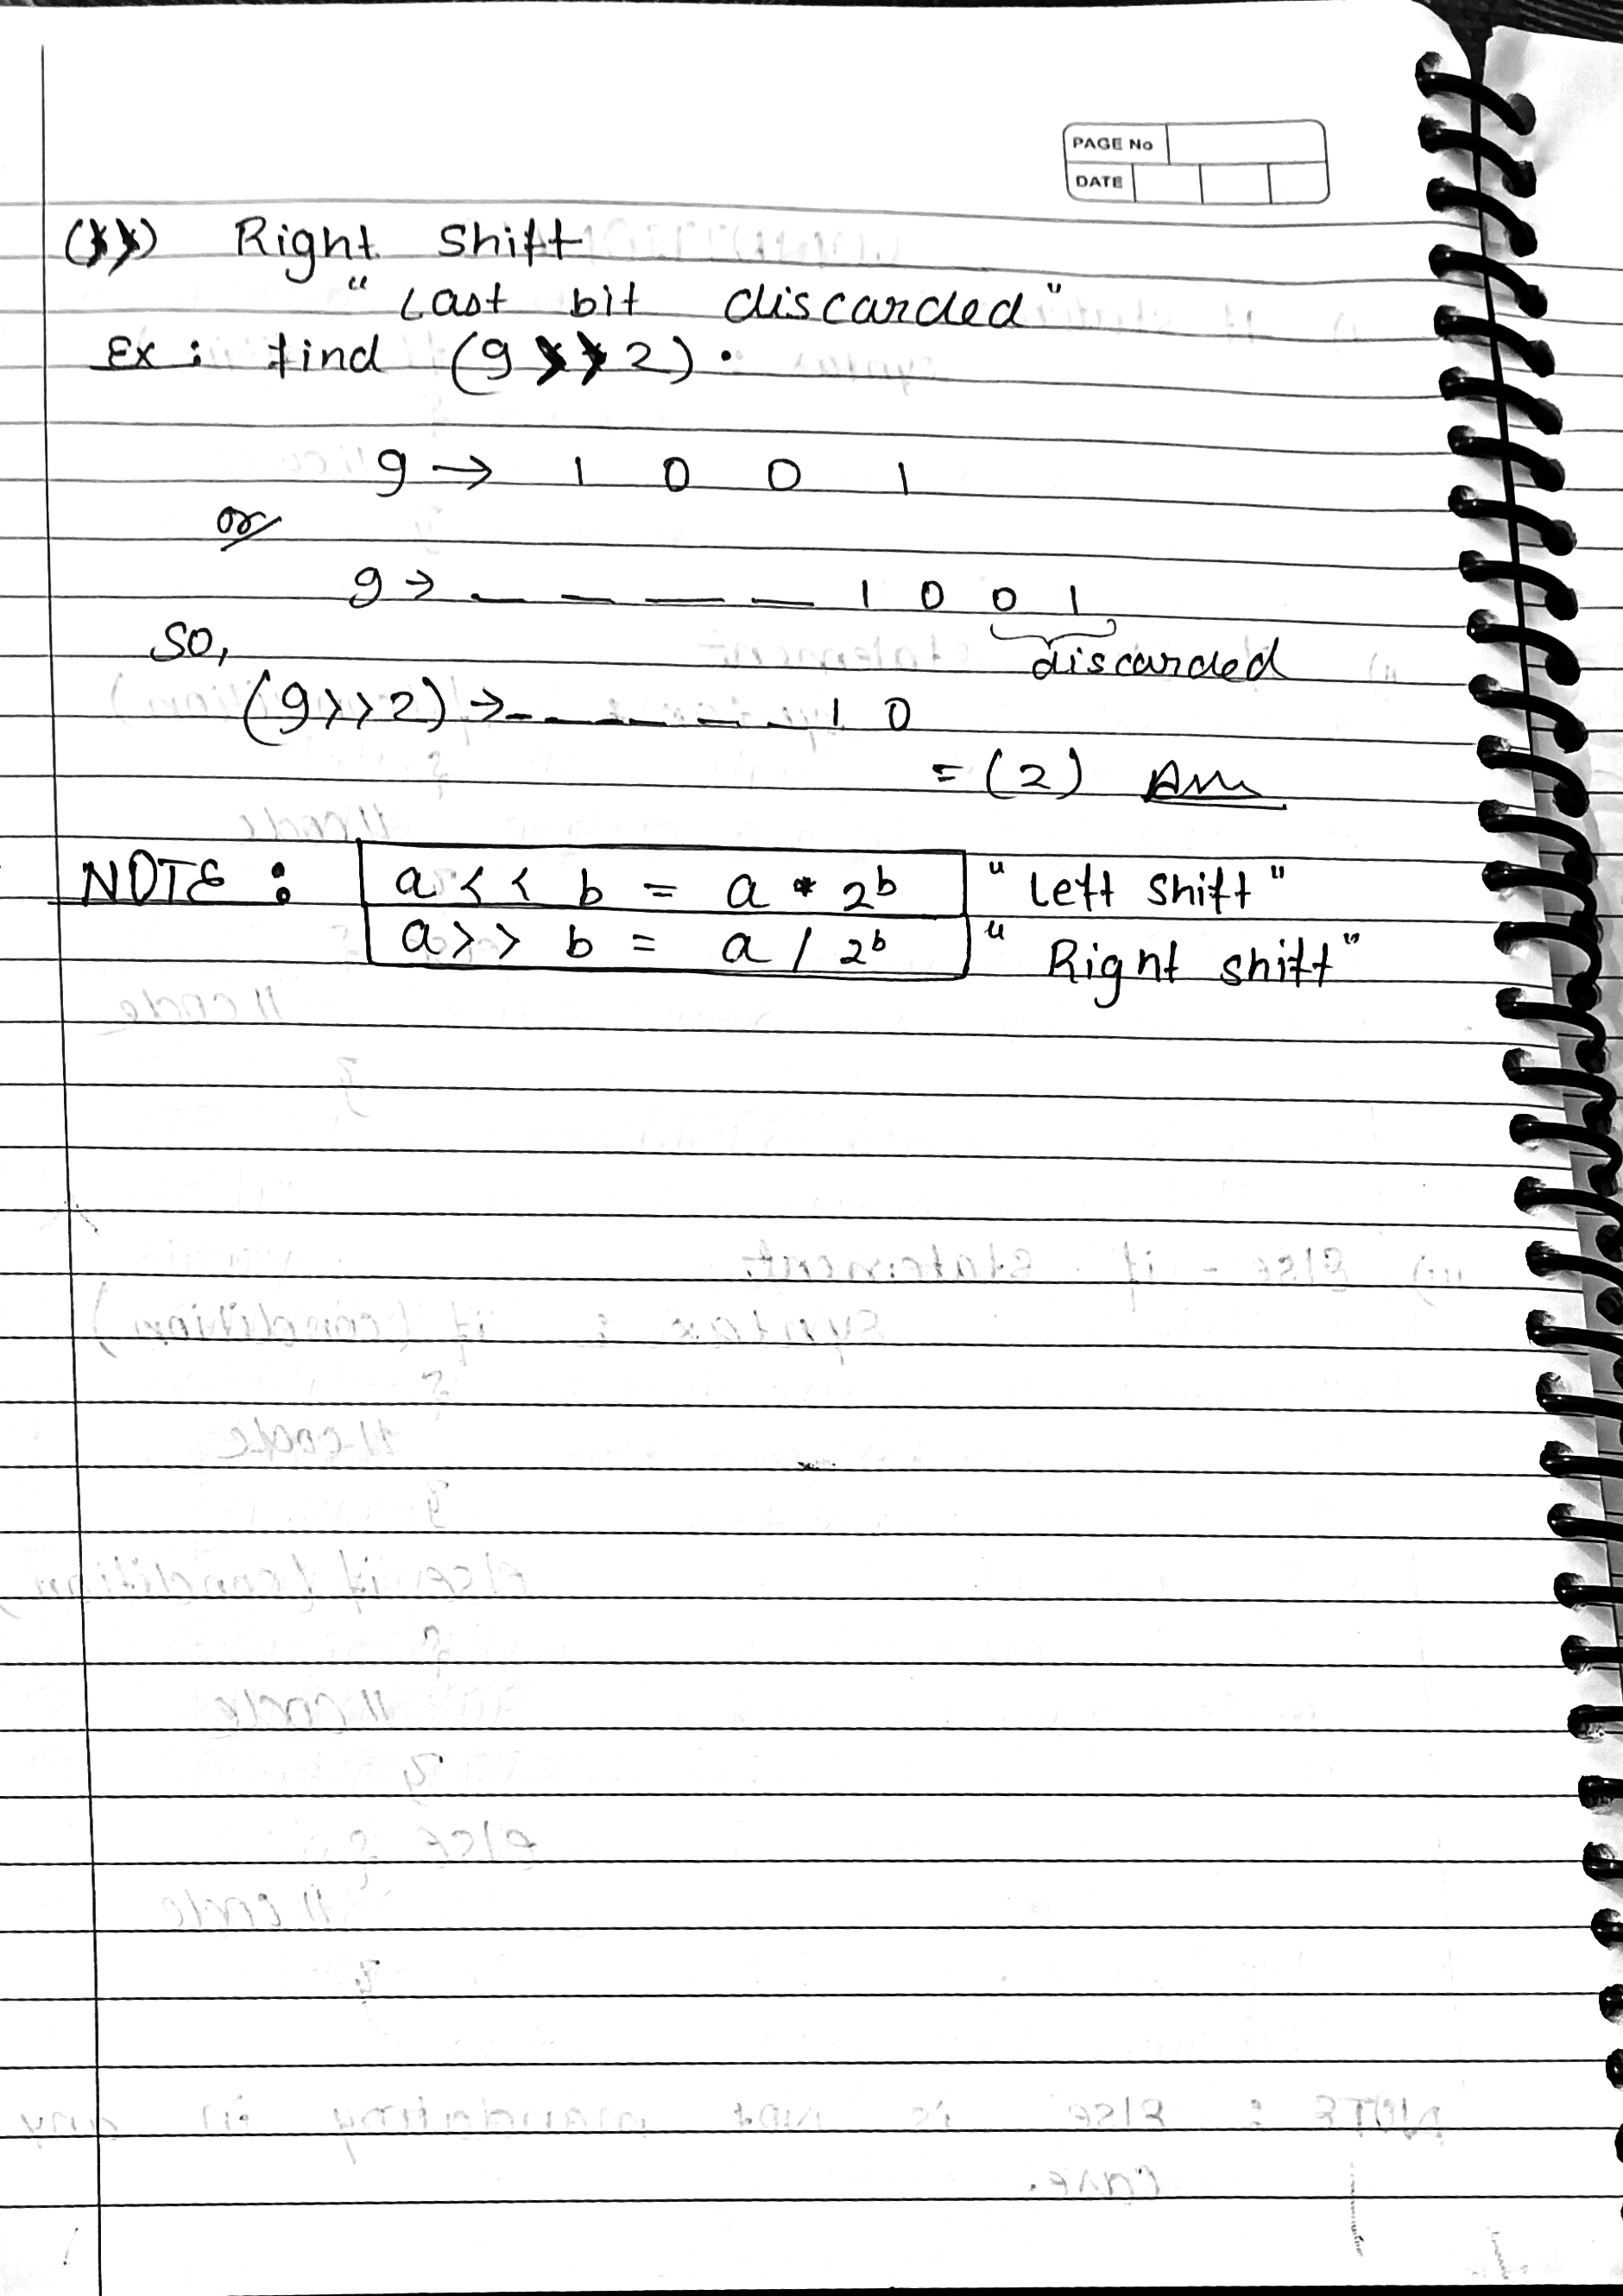 PAGE No
DATE
(>>) Right shift
"Last bit discarded"
Ex: find (9 >> 2).
9 → 1 0 0 1
or
9 → _ _ _ _ 1 0 0 1
discarded
SO,
(9>>2) → _ _ _ _ _ _ 1 0
= (2) Ans
NOTE: a << b = a * 2ᵇ "Left shift"
a >> b = a / 2ᵇ "Right shift"